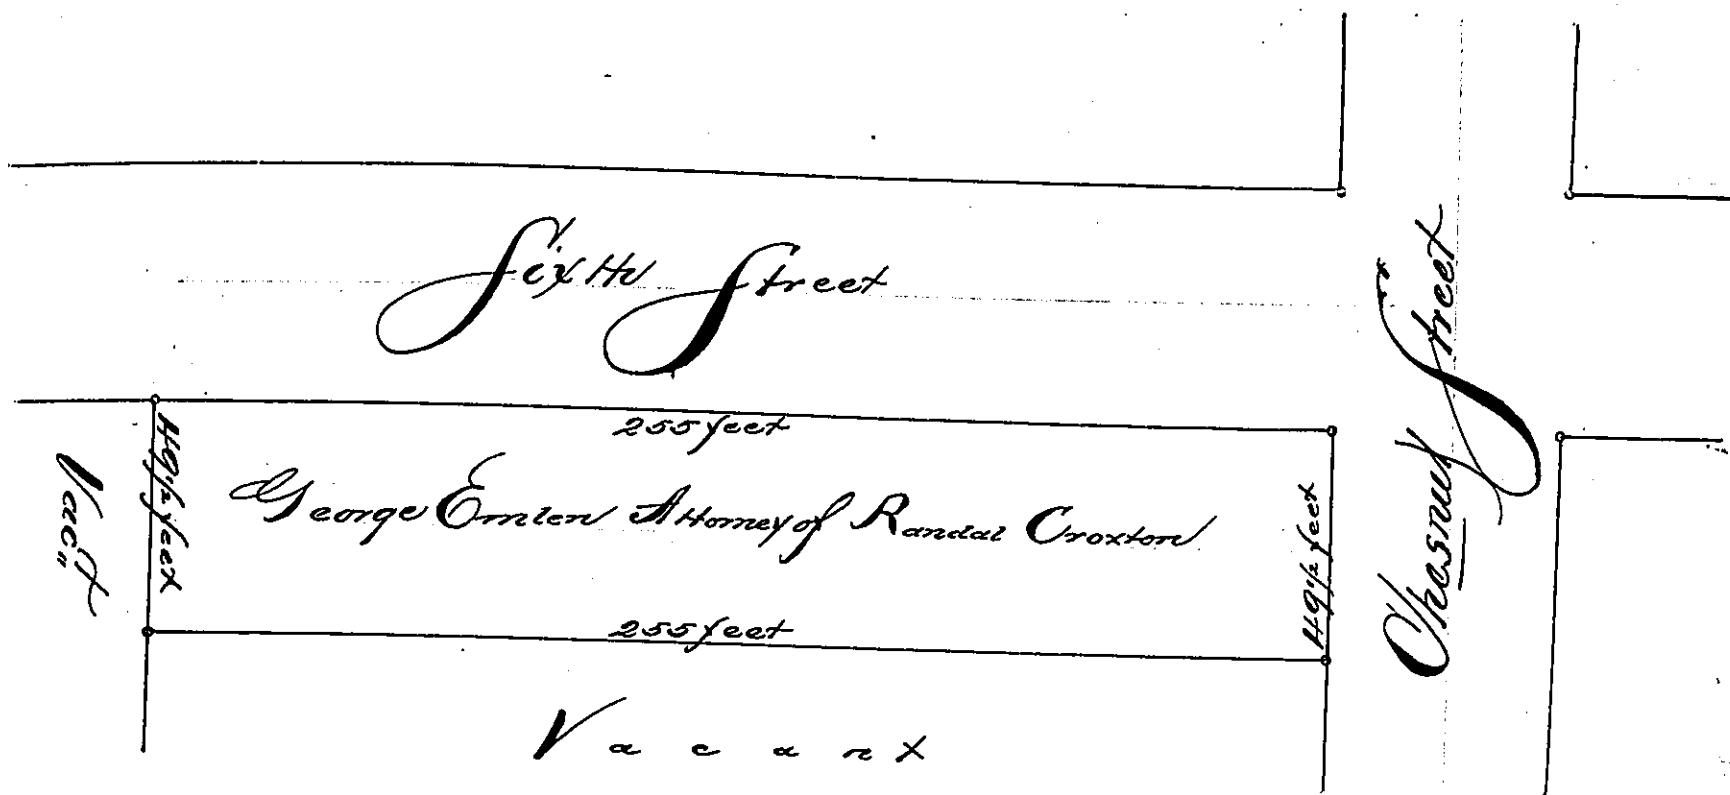 Sixth Street
Chesnut Street
255 feet
49 1/2 feet
Vac"t
George Emlen Attorney of Randal Croxton
49 1/2 feet
255 feet
Vacant